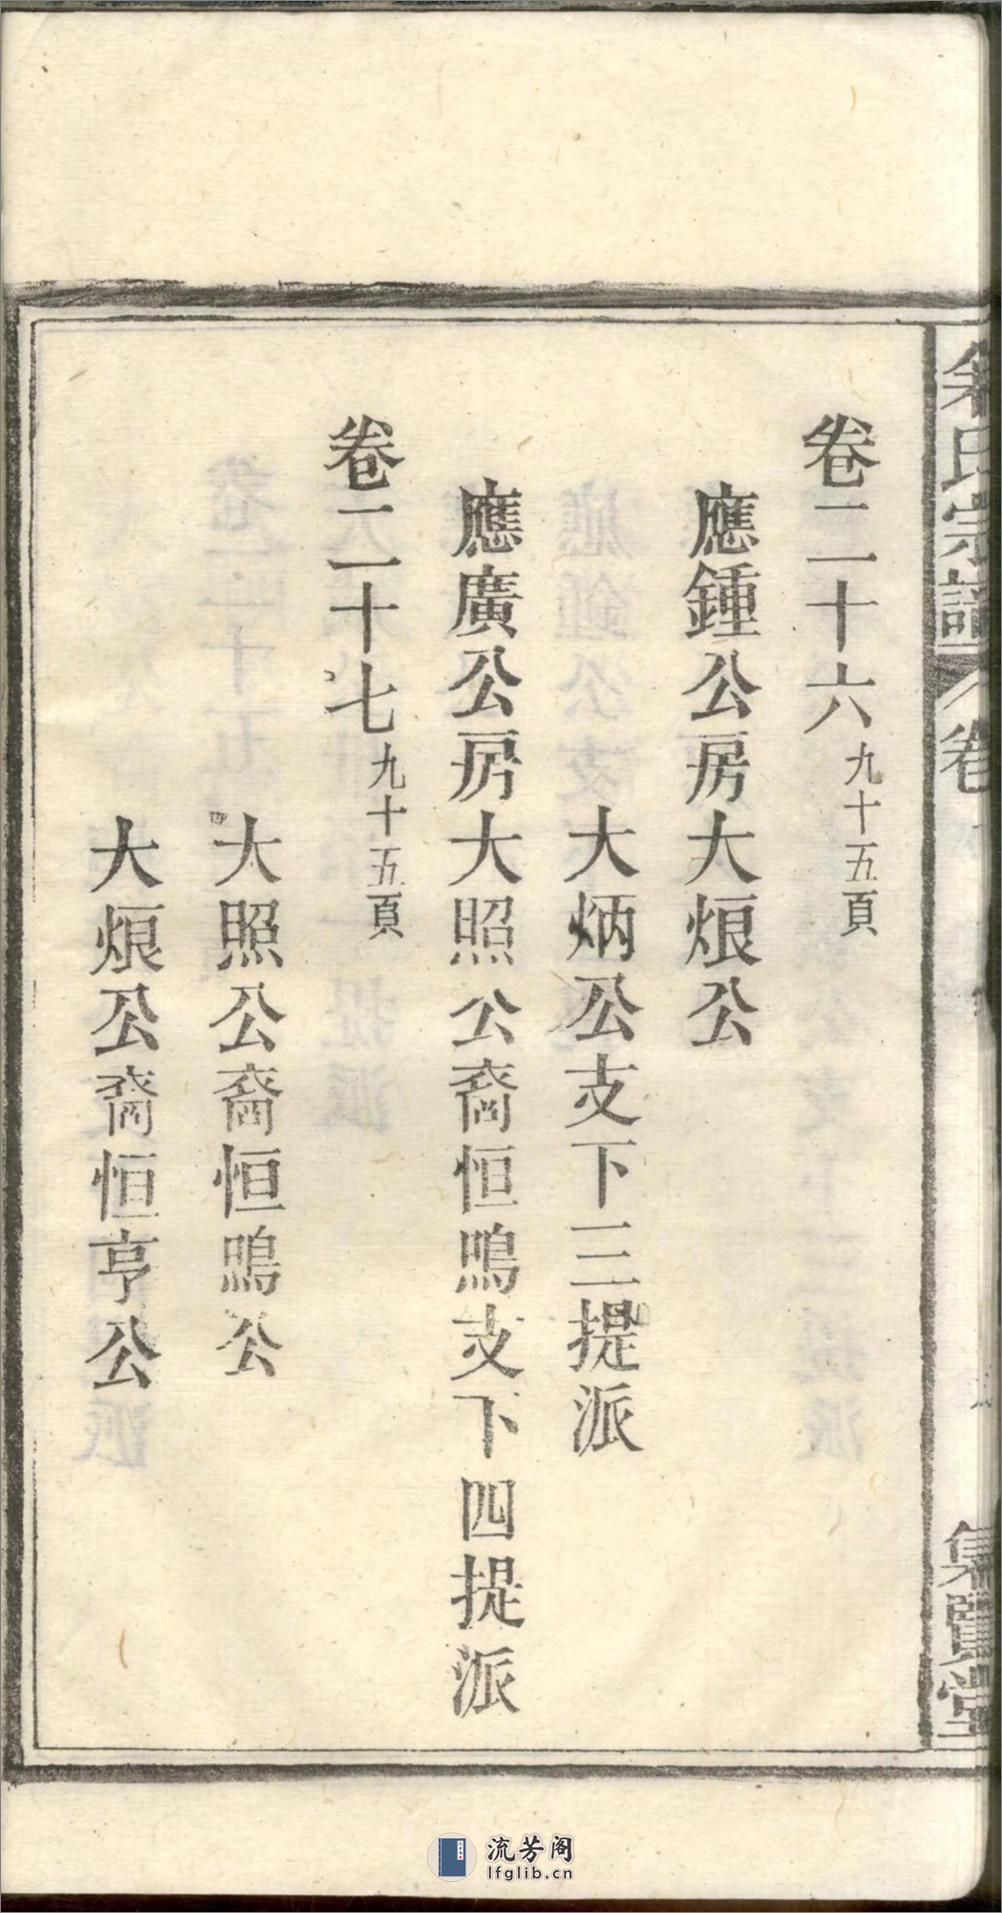 朱氏宗譜 卷
集賢堂
卷二十六 九十五頁
應鍾公房大烺公
大炳公支下三提派
應廣公房大照公裔恒鳴支下四提派
卷二十七 九十五頁
大照公裔恒鳴公
大烺公裔恒亨公
流芳阁
lfglib.cn